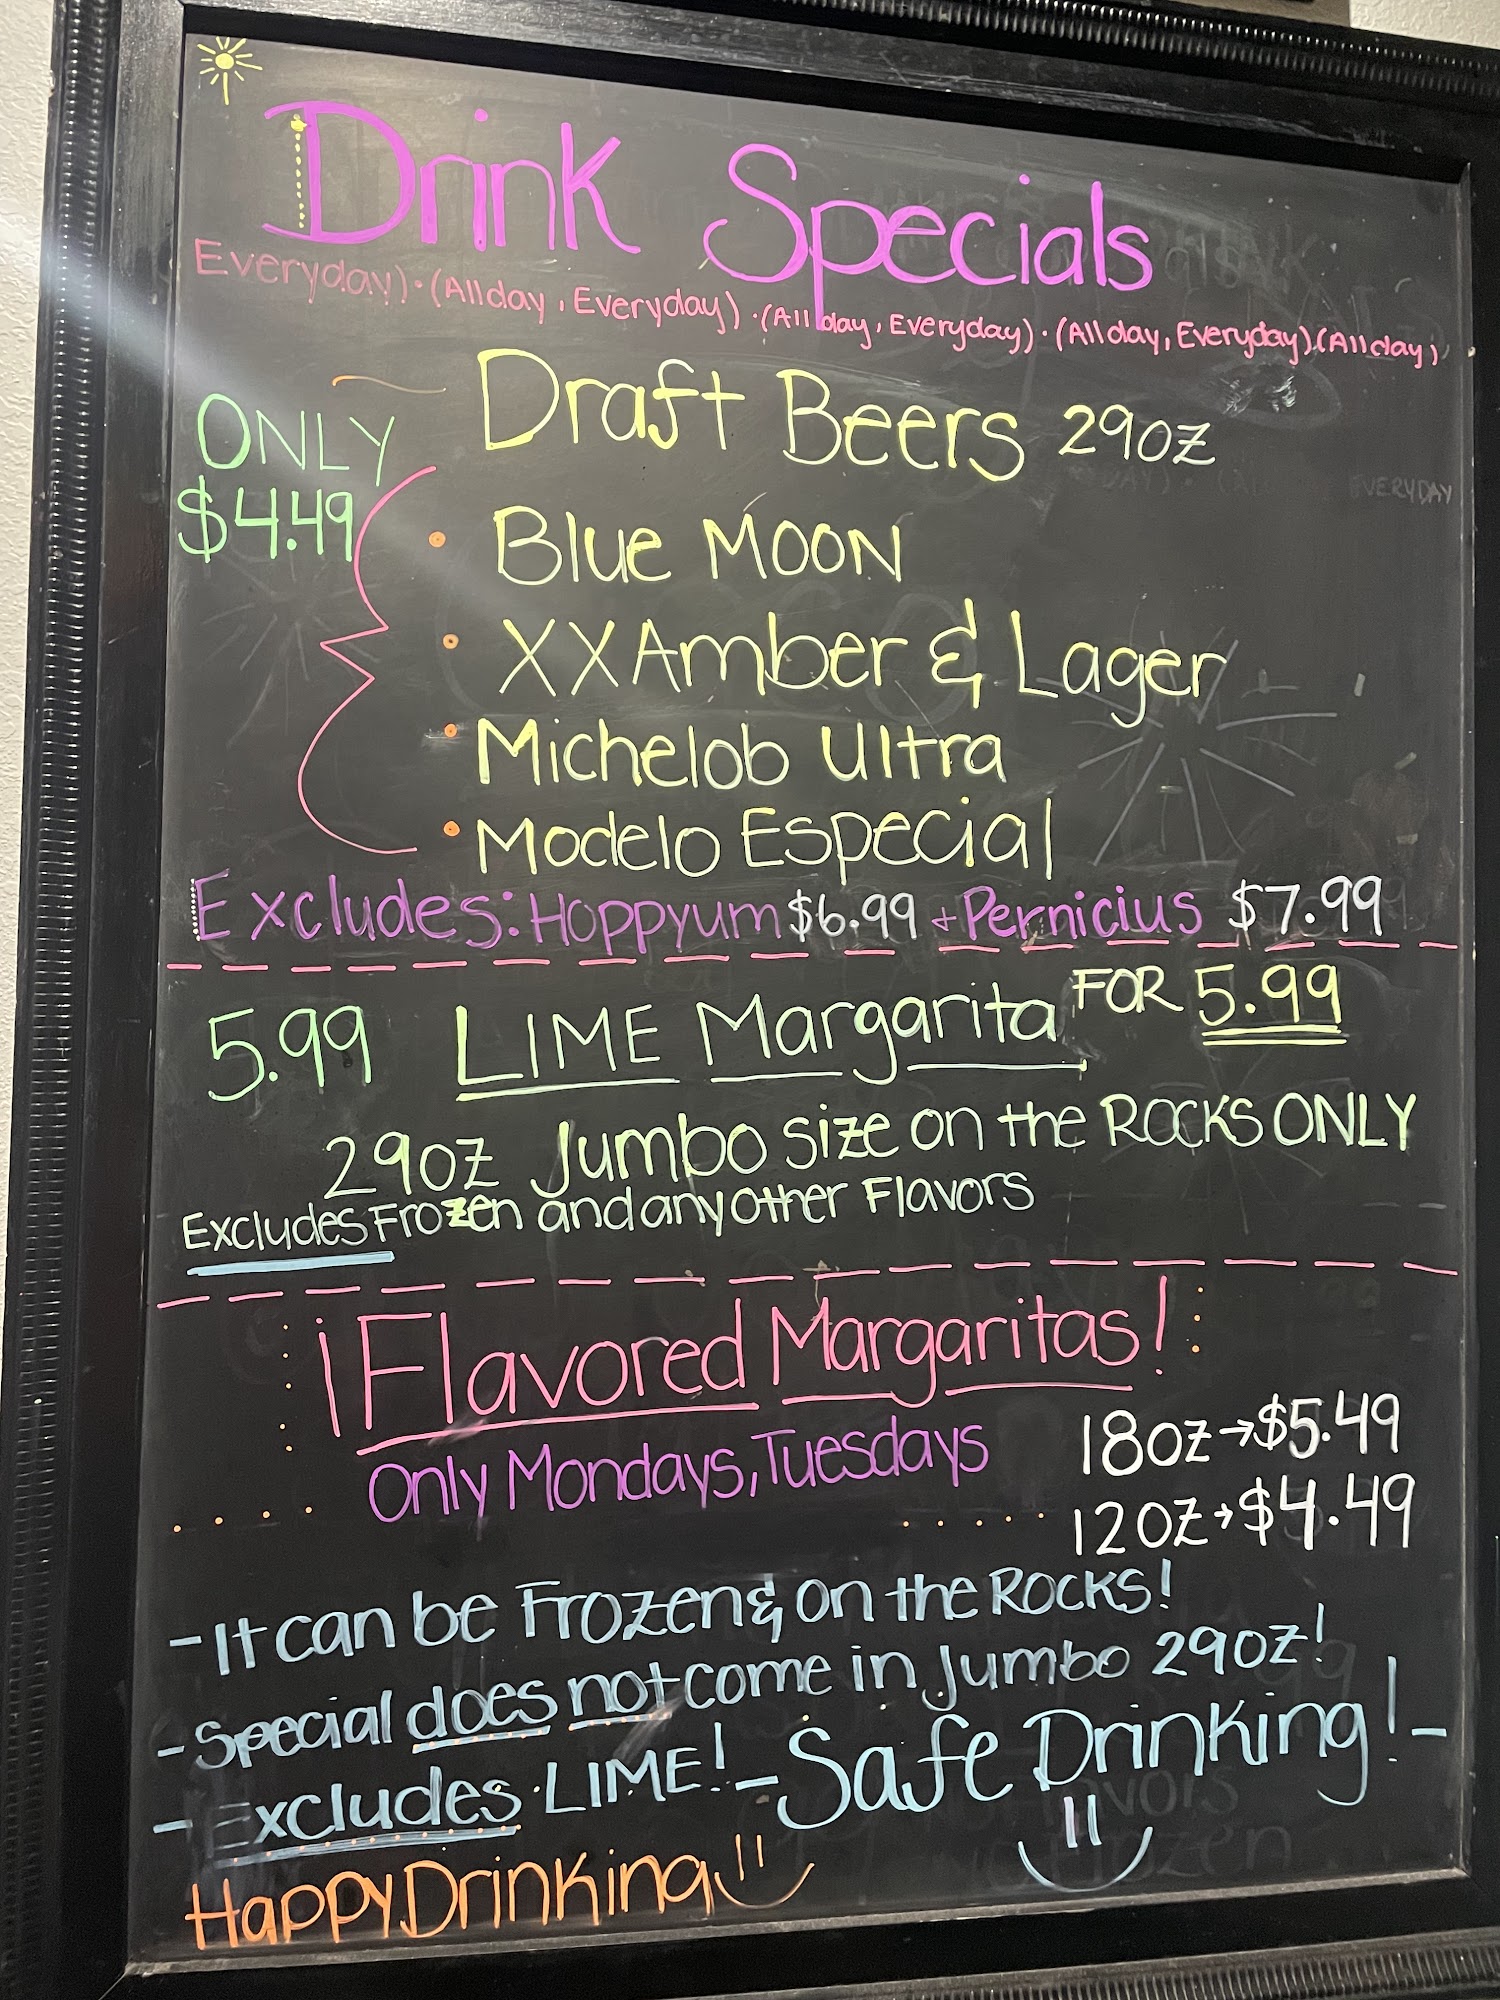 Drink Specials
Everyday) · (All day, Everyday) · (All day, Everyday) · (All day, Everyday) (All day)
Draft Beers 29oz
ONLY
$4.49
• Blue MOON
• XX Amber & Lager
• Michelob Ultra
• Modelo Especial
Excludes: Hoppyum $6.99 + Pernicius $7.99
5.99 LIME Margarita FOR 5.99
29oz Jumbo size on the ROCKS ONLY
Excludes Frozen and any other Flavors
¡Flavored Margaritas!
Only Mondays, Tuesdays
18oz → $5.49
12oz → $4.49
- It can be Frozen & on the ROCKS!
- Special does not come in Jumbo 29oz!
- Excludes · LIME! - Safe Drinking! -
Happy Drinking